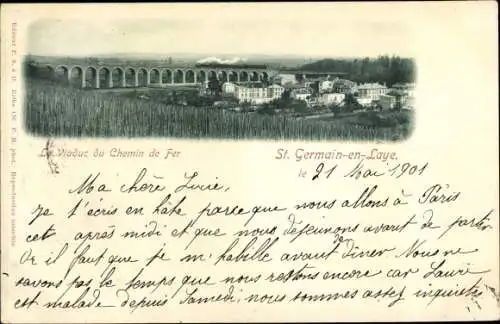 Le Viaduc du Chemin de Fer
St. Germain-en-Laye,
le 21 Mai 1901
Ma chère Lucie,
Je t'écris en hâte parce que nous allons à Paris
cet après midi et que nous déjeunons avant de partir
Or il faut que je m'habille avant diner. Nous ne
savons pas le temps que nous restons encore car Laure
est malade depuis Samedi, nous sommes assez inquiètes